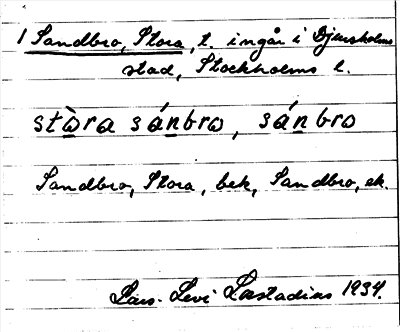 1 Sandbro, Stora, t. ingår i Djursholms
stad, Stockholms l.
stò̱ra sáṉbro, sáṉbro
Sandbro, Stora, bek, Sandbro, ek.
Lars-Levi Læstadius 1934.